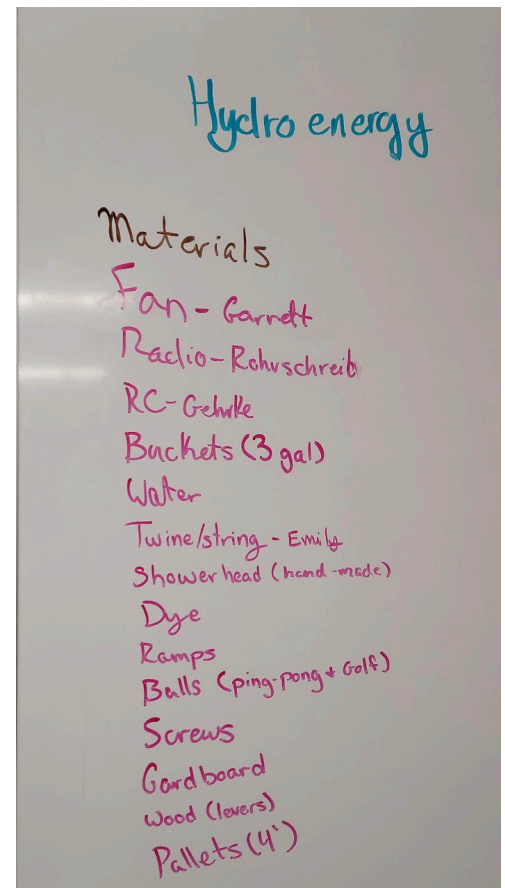 Hydro energy
Materials
Fan - Garrett
Radio - Rohrschreib
RC - Gehrke
Buckets (3 gal)
Water
Twine/string - Emily
Shower head (hand-made)
Dye
Ramps
Balls (ping-pong + Golf)
Screws
Cardboard
Wood (levers)
Pallets (4')